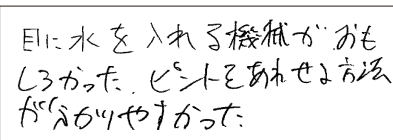 目に水を入れる機械がおも
しろかった。ピントをあわせる方法
が分かりやすかった